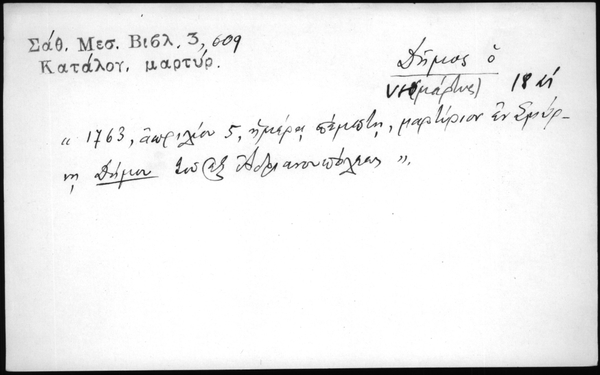 Σάθ. Μεσ. Βιβλ. 3, 609
Καταλογ. μαρτύρ.
Δῆμος ὁ
νεο(μάρτυς) 18 αἰ
« 1763, ἀπριλίου 5, ἡμέρᾳ πέμπτῃ, μαρτύριον ἐν Σμύρ-
νῃ Δήμου τοῦ ἐξ Ἀδριανουπόλεως ».